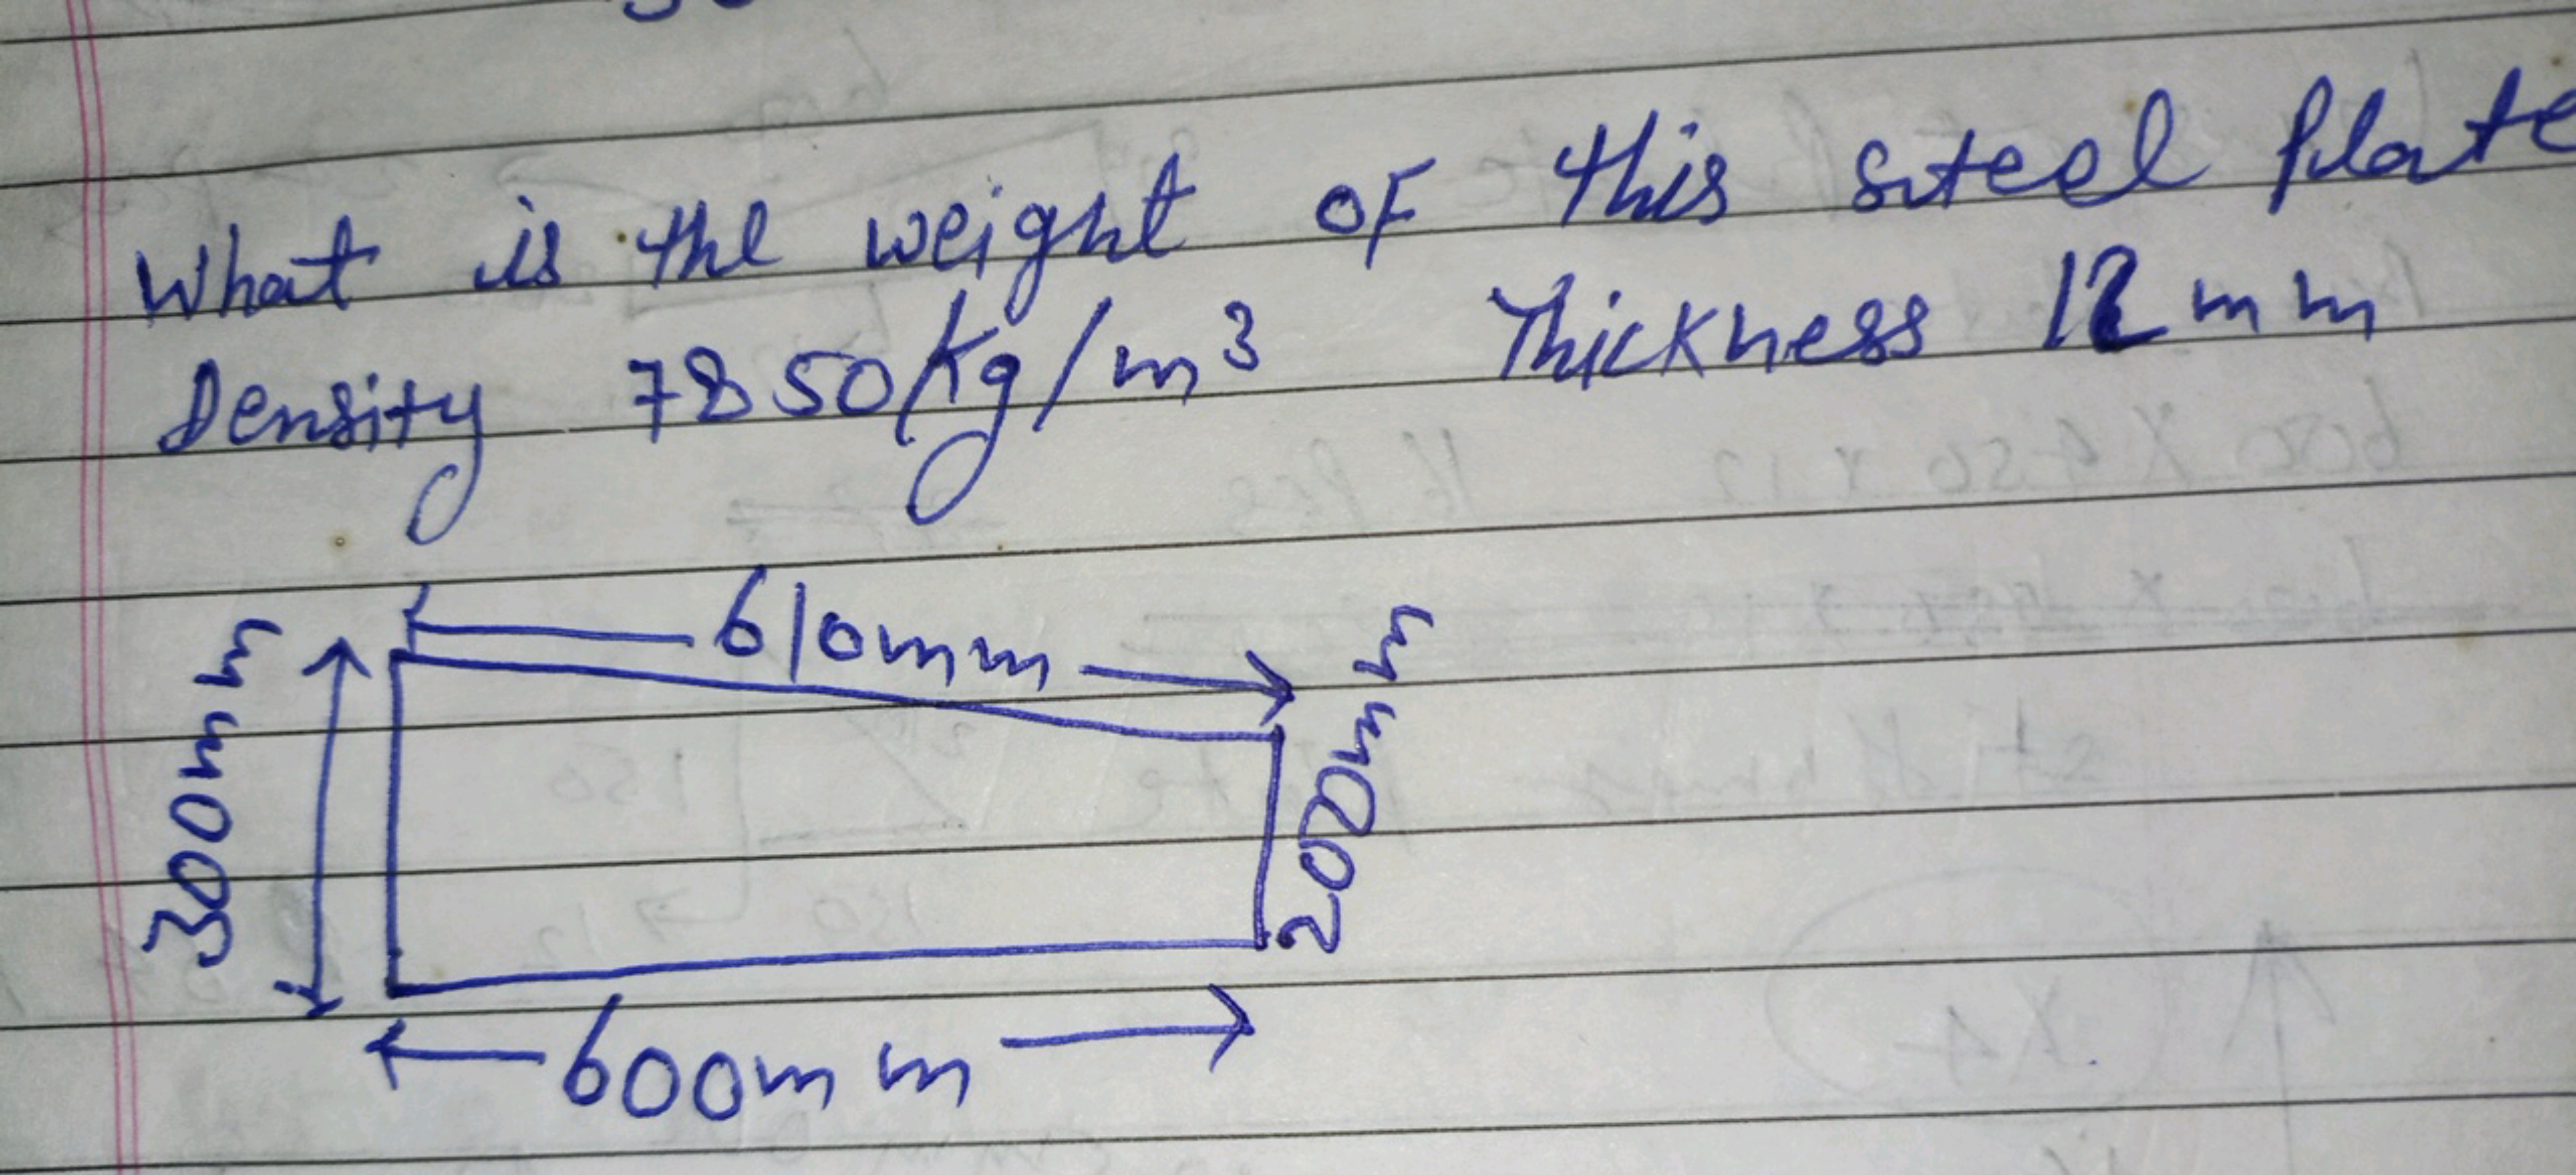 What is the weight of this steel plate
Density 7850Kg/m³ Thickness 12mm
610mm
300mm
200mm
600mm